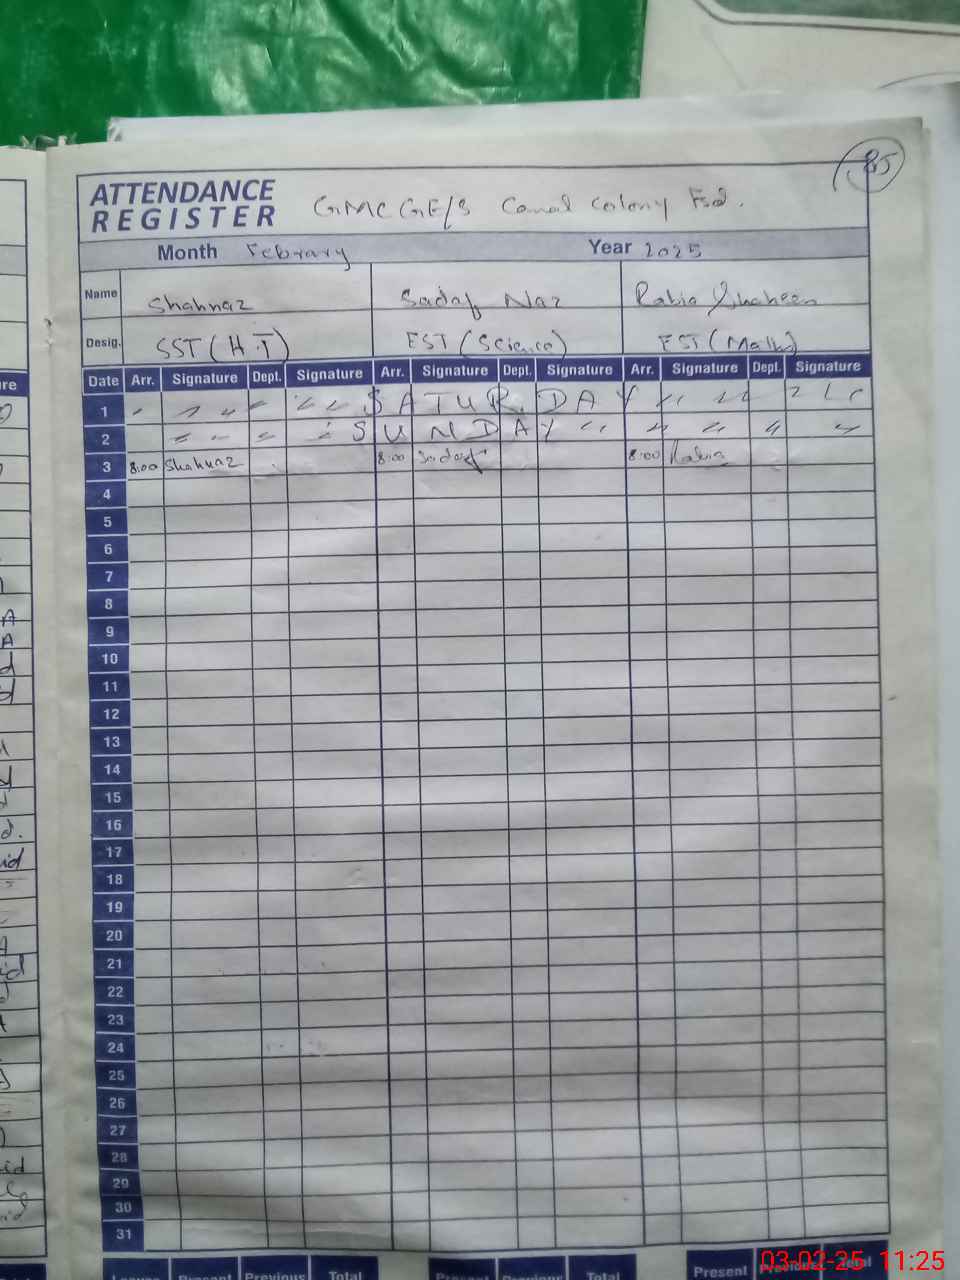 85
ATTENDANCE
REGISTER
GMC GE/S Canal Colony Fsd.
Month Febrary Year 2025
Name Shahnaz Sadaf Naz Rabia Shaheen
Desig. SST (H.T) EST (Science) EST (Math)
Date Arr. Signature Dept. Signature Arr. Signature Dept. Signature Arr. Signature Dept. Signature
1 SATURDAY
2 SUNDAY
3 8:00 Shahnaz 8:00 Sadaf 8:00 Rabia
4
5
6
7
8
9
10
11
12
13
14
15
16
17
18
19
20
21
22
23
24
25
26
27
28
29
30
31
Leaves Present Previous Total Present Previous Total Present Previous Total
03-02-25 11:25